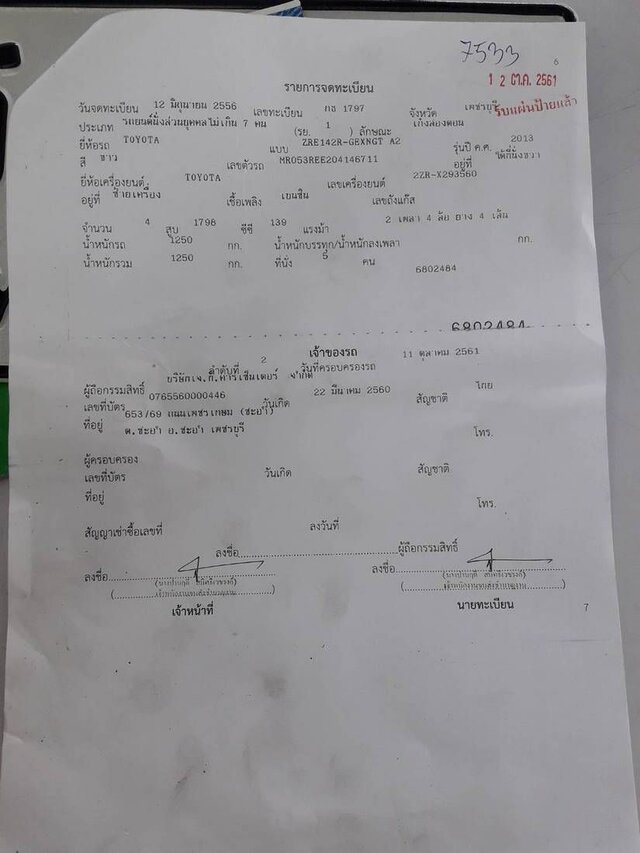 7533
6
12 ต.ค. 2561
รายการจดทะเบียน
รับแผ่นป้ายแล้ว
วันจดทะเบียน 12 มิถุนายน 2556 เลขทะเบียน กช 1797 จังหวัด เพชรบุรี
ประเภท รถยนต์นั่งส่วนบุคคลไม่เกิน 7 คน (รย. 1 ) ลักษณะ เก๋งสองตอน
ยี่ห้อรถ TOYOTA แบบ ZRE142R-GEXNGT A2 รุ่นปี ค.ศ. 2013
สี ขาว เลขตัวรถ MR053REE204146711 อยู่ที่ ใต้ที่นั่งขวา
ยี่ห้อเครื่องยนต์ TOYOTA เลขเครื่องยนต์ 2ZR-X293560
อยู่ที่ ซ้ายเครื่อง เชื้อเพลิง เบนซิน เลขถังแก๊ส
จำนวน 4 สูบ 1798 ซีซี 139 แรงม้า 2 เพลา 4 ล้อ ยาง 4 เส้น
น้ำหนักรถ 1250 กก. น้ำหนักบรรทุก/น้ำหนักลงเพลา กก.
น้ำหนักรวม 1250 กก. ที่นั่ง 5 คน
6802484
6802484
เจ้าของรถ
ลำดับที่ 2 วันที่ครอบครองรถ 11 ตุลาคม 2561
ผู้ถือกรรมสิทธิ์ บริษัทเจ.ที.คาร์เซ็นเตอร์ จำกัด
เลขที่บัตร 0765560000446 วันเกิด 22 มีนาคม 2560 สัญชาติ ไทย
ที่อยู่ 653/69 ถนนเพชรเกษม (ชะอำ)
ต.ชะอำ อ.ชะอำ เพชรบุรี โทร.
ผู้ครอบครอง
เลขที่บัตร วันเกิด สัญชาติ
ที่อยู่
โทร.
สัญญาเช่าซื้อเลขที่ ลงวันที่
ลงชื่อ ผู้ถือกรรมสิทธิ์
ลงชื่อ ลงชื่อ
เจ้าหน้าที่ นายทะเบียน
7